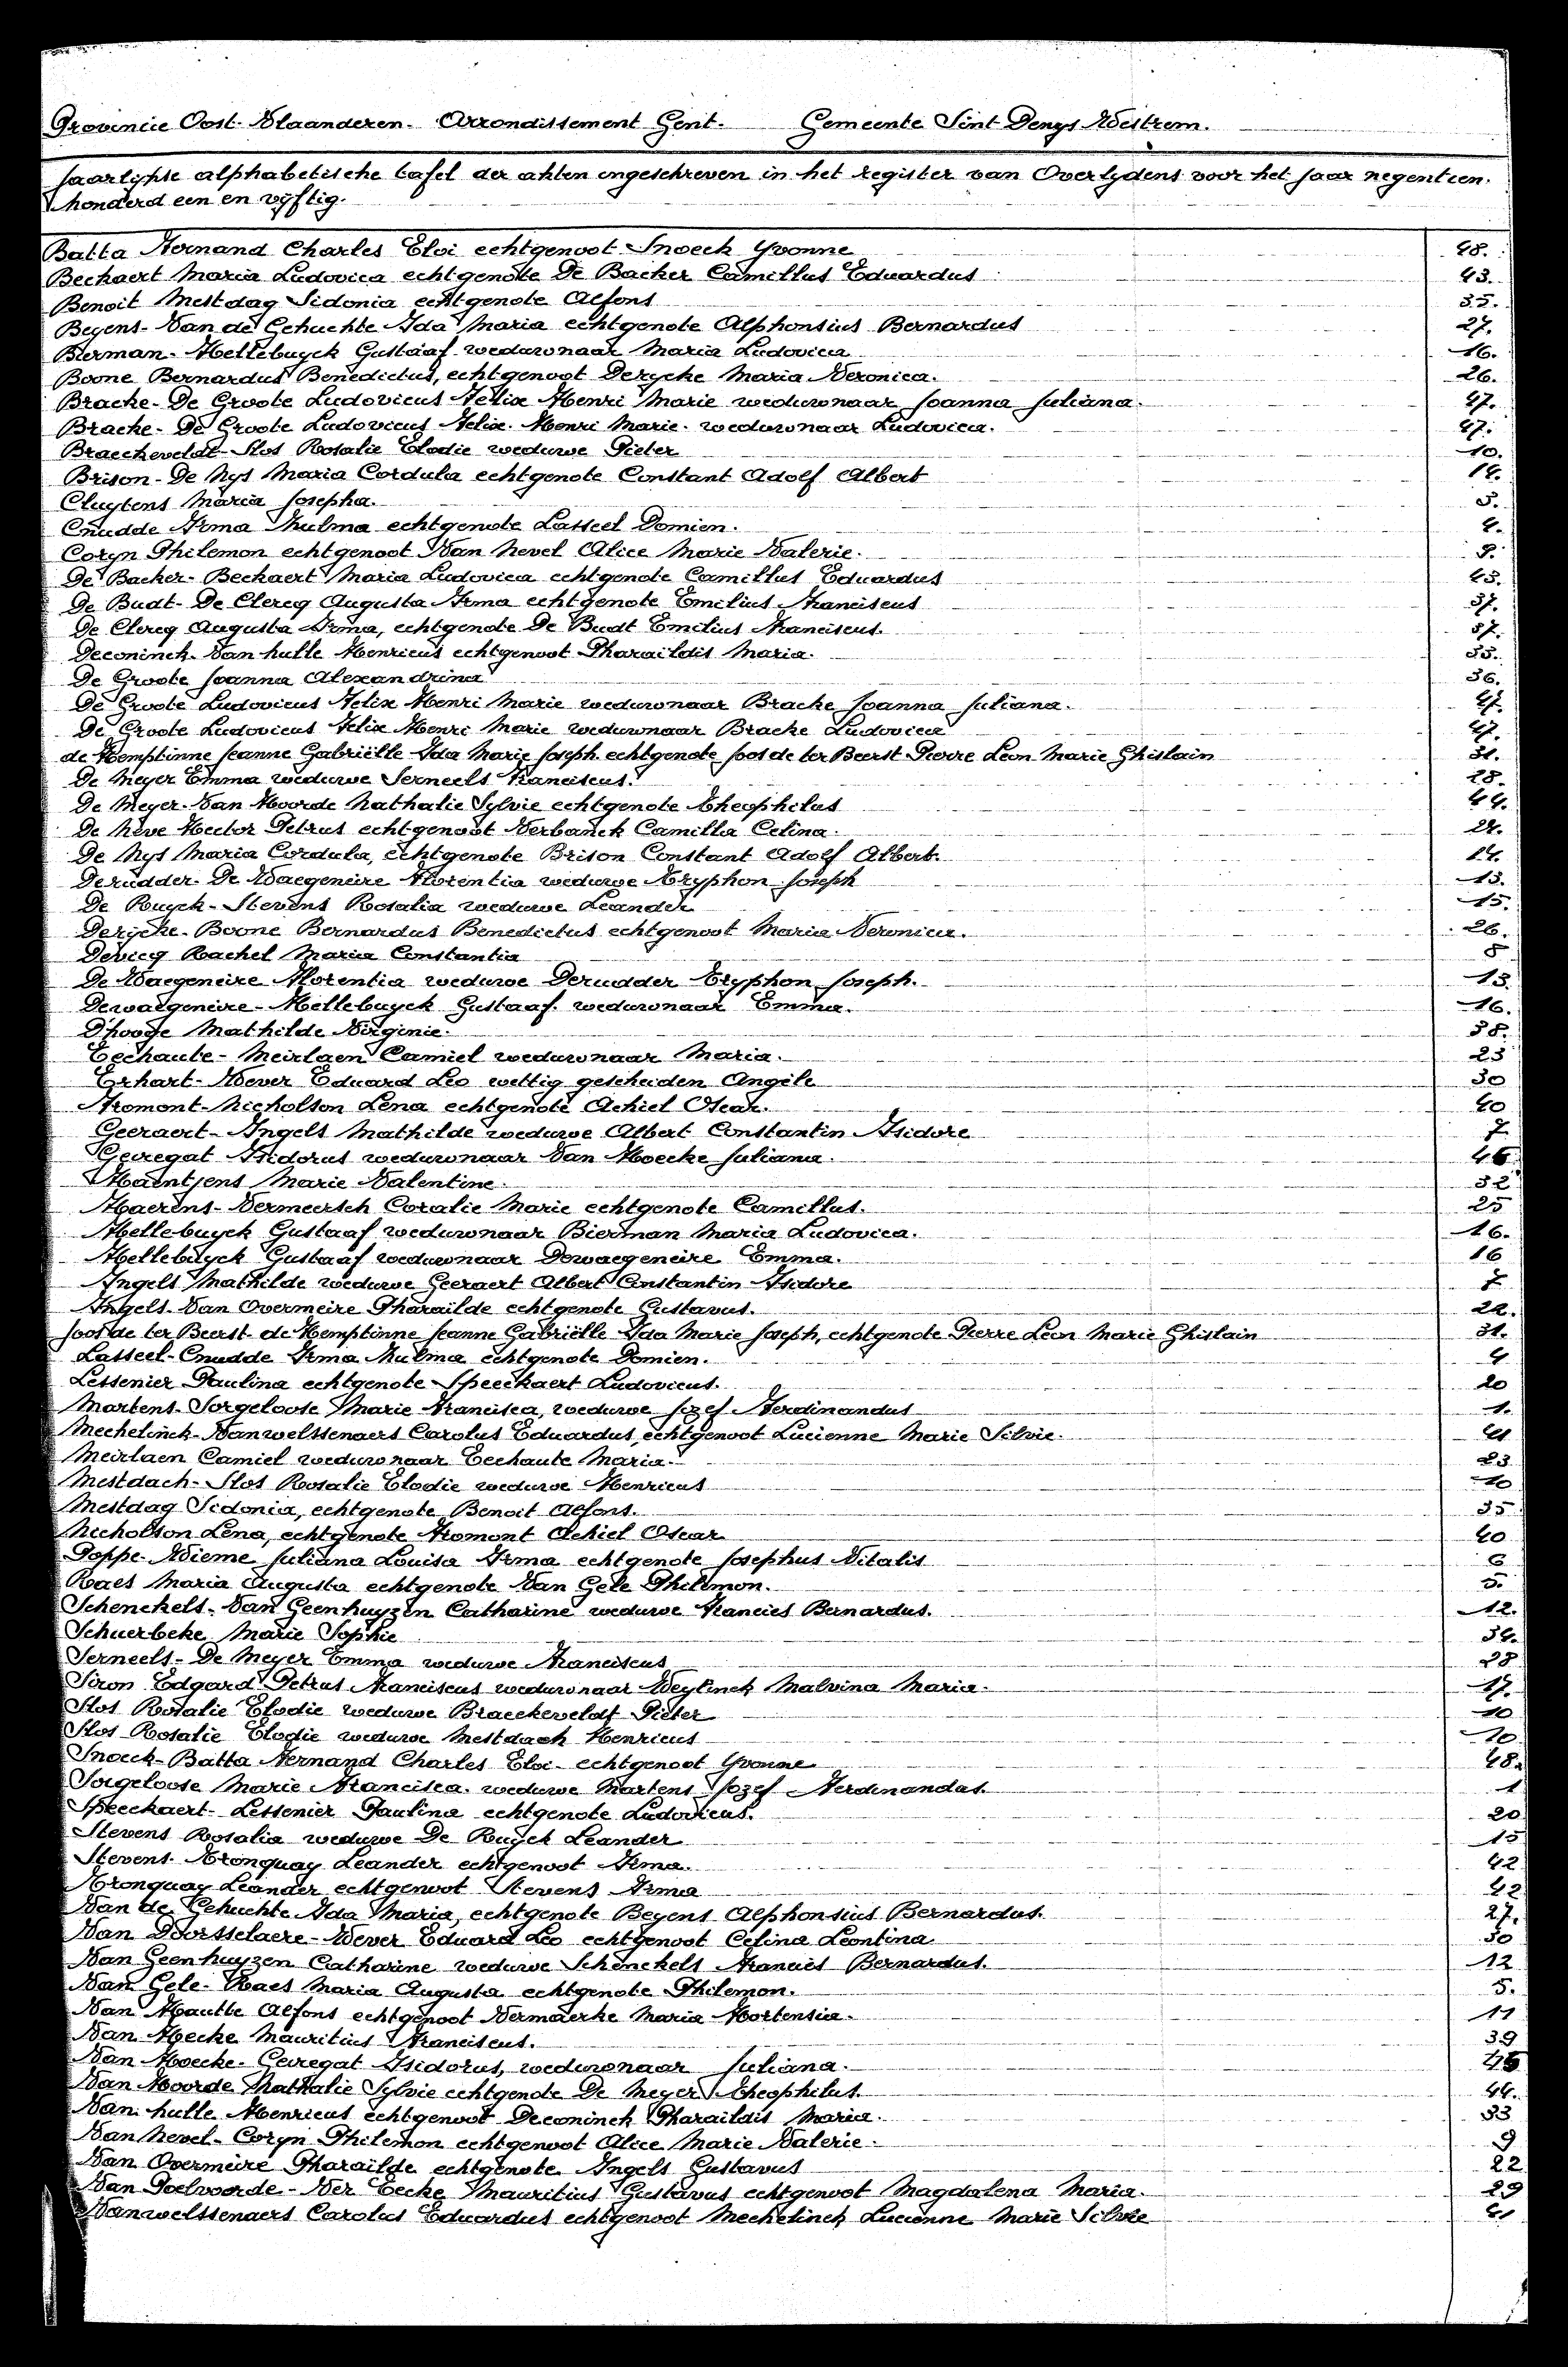 Provincie Oost-Vlaanderen. Arrondissement Gent. Gemeente Sint Denys Westrem.
Jaarlijkse alphabetische tafel der akten ingeschreven in het register van Overlydens voor het jaar negentien.
honderd een en vyftig.
Batta Fernand Charles Eloi echtgenoot Snoeck Yvonne 48.
Beckaert Maria Ludovica echtgenote De Backer Camillus Eduardus 43.
Benoit Mestdag Sidonia echtgenote Alfons 35.
Beyens-Van de Gehuchte Ida Maria echtgenote Alphonsius Bernardus 27.
Bierman-Hellebuyck Gustaaf weduwnaar Maria Ludovica 16.
Boone Bernardus Benedictus, echtgenoot Derycke Maria Veronica. 26.
Bracke-De Groote Ludovicus Felix Henri Marie weduwnaar Joanna Juliana. 47.
Bracke-De Groote Ludovicus Felix Henri Marie. weduwnaar Ludovica. 47.
Braeckeveldt-Slos Rosalie Elodie weduwe Pieter 10.
Brison-De Nys Maria Cordula echtgenote Constant Adolf Albert 14.
Cluytens Maria Josepha. 3.
Cnudde Irma Hulma echtgenote Lasseel Domien. 4.
Coryn Philemon echtgenoot Van Nevel Alice Marie Valerie. 9.
De Backer-Beckaert Maria Ludovica echtgenote Camillus Eduardus 43.
De Budt-De Clercq Augusta Irma echtgenote Emilius Franciscus 37.
De Clercq Augusta Irma, echtgenote De Budt Emilius Franciscus. 37.
Deconinck-Van hulle Henricus echtgenoot Pharaildis Maria. 33.
De Groote Joanna Alexandrina 36.
De Groote Ludovicus Felix Henri Marie weduwnaar Bracke Joanna Juliana. 47.
De Groote Ludovicus Felix Henri Marie weduwnaar Bracke Ludovica 47.
de Hemptinne Jeanne Gabriëlle Ida Marie Joseph. echtgenote Joos de ter Beerst Pierre Léon Marie Ghislain 31.
De Meyer Emma weduwe Serneels Franciscus. 28.
De Meyer-Van Hoorde Nathalie Sylvie echtgenote Theophilus 44.
De Neve Hector Petrus echtgenoot Verbanck Camilla Celina. 24.
De Nys Maria Cordula, echtgenote Brison Constant Adolf Albert. 14.
Derudder-De Waegeneire Florentia weduwe Tryphon Joseph 13.
De Ruyck-Stevens Rosalia weduwe Leander 15.
Derycke-Boone Bernardus Benedictus echtgenoot Maria Veronica. 26.
Devicq Rachel Maria Constantia 8
De Waegeneire Florentia weduwe Derudder Tryphon Joseph. 13.
Dewaegeneire-Hellebuyck Gustaaf. weduwnaar Emma. 16.
D'hooge Mathilde Virginie. 38.
Eechaute-Meirlaen Camiel weduwnaar Maria. 23
Erhart-Wever Eduard Leo wettig gescheiden Angèle 30
Fromont-Nicholson Lena echtgenote Achiel Oscar. 40
Geeraert-Ingels Mathilde weduwe Albert Constantin Isidore 7
Geiregat Isidorus weduwnaar Van Hoecke Juliana. 46
Haentjens Marie Valentine. 32
Haerens-Vermeersch Coralie Marie echtgenote Camillus. 25
Hellebuyck Gustaaf weduwnaar Bierman Maria Ludovica. 16.
Hellebuyck Gustaaf weduwnaar Dewaegeneire Emma. 16
Ingels Mathilde weduwe Geeraert Albert Constantin Isidore 7
Ingels-Van Overmeire Pharailde echtgenote Gustavus. 22.
Joos de ter Beerst-de Hemptinne Jeanne Gabriëlle Ida Marie Joseph, echtgenote Pierre Léon Marie Ghislain 31.
Lasseel-Cnudde Irma Hulma echtgenote Domien. 4
Lessenier Paulina echtgenote Speeckaert Ludovicus. 20
Martens-Sorgeloose Marie Francisca, weduwe Jozef Ferdinandus 1.
Mechelinck-Vanwelssenaers Carolus Eduardus, echtgenoot Lucienne Marie Silvie. 41
Meirlaen Camiel weduwnaar Eechaute Maria. 23
Mestdach-Slos Rosalie Elodie weduwe Henricus 10
Mestdag Sidonia, echtgenote Benoit Alfons. 35
Nicholson Lena, echtgenote Fromont Achiel Oscar 40
Poppe-Wieme Juliana Louisa Irma echtgenote Josephus Vitalis 6
Raes Maria Augusta echtgenote Van Gele Philemon. 5.
Schenckels-Van Geenhuyzen Catharine weduwe Francies Bernardus. 12.
Schuerbeke Marie Sophie 34.
Serneels-De Meyer Emma weduwe Franciscus 28
Siron Edgard Petrus Franciscus weduwnaar Weylinck Malvina Maria. 17.
Slos Rosalie Elodie weduwe Braeckeveldt Pieter 10
Slos Rosalie Elodie weduwe Mestdach Henricus 10
Snoeck-Batta Fernand Charles Eloi echtgenoot Yvonne 48.
Sorgeloose Marie Francisca. weduwe Martens Jozef Ferdinandus. 1
Speeckaert-Lessenier Paulina echtgenote Ludovicus. 20
Stevens Rosalia weduwe De Ruyck Leander 15
Stevens-Tronquay Leander echtgenoot Irma. 42
Tronquay Leander echtgenoot Stevens Irma 42
Van de Gehuchte Ida Maria, echtgenote Beyens Alphonsius Bernardus. 27.
Van Doorsselaere-Wever Eduard Leo echtgenoot Celina Leontina 30
Van Geenhuyzen Catharine weduwe Schenckels Francies Bernardus. 12
Van Gele-Raes Maria Augusta echtgenote Philemon. 5.
Van Hautte Alfons echtgenoot Vermaerke Maria Hortensia. 11
Van Hecke Mauritius Franciscus. 39
Van Hoecke-Geiregat Isidorus, weduwnaar Juliana. 46
Van Hoorde Nathalie Sylvie echtgenote De Meyer Theophilus. 44.
Van hulle Henricus echtgenoot Deconinck Pharaildis Maria. 33
Van Nevel-Coryn Philemon echtgenoot Alice Marie Valerie. 9
Van Overmeire Pharailde echtgenote Ingels Gustavus 22
Van Poelvoorde-Ver Eecke Mauritius Gustavus echtgenoot Magdalena Maria. 29
Vanwelssenaers Carolus Eduardus echtgenoot Mechelinck Lucienne Marie Silvie 41